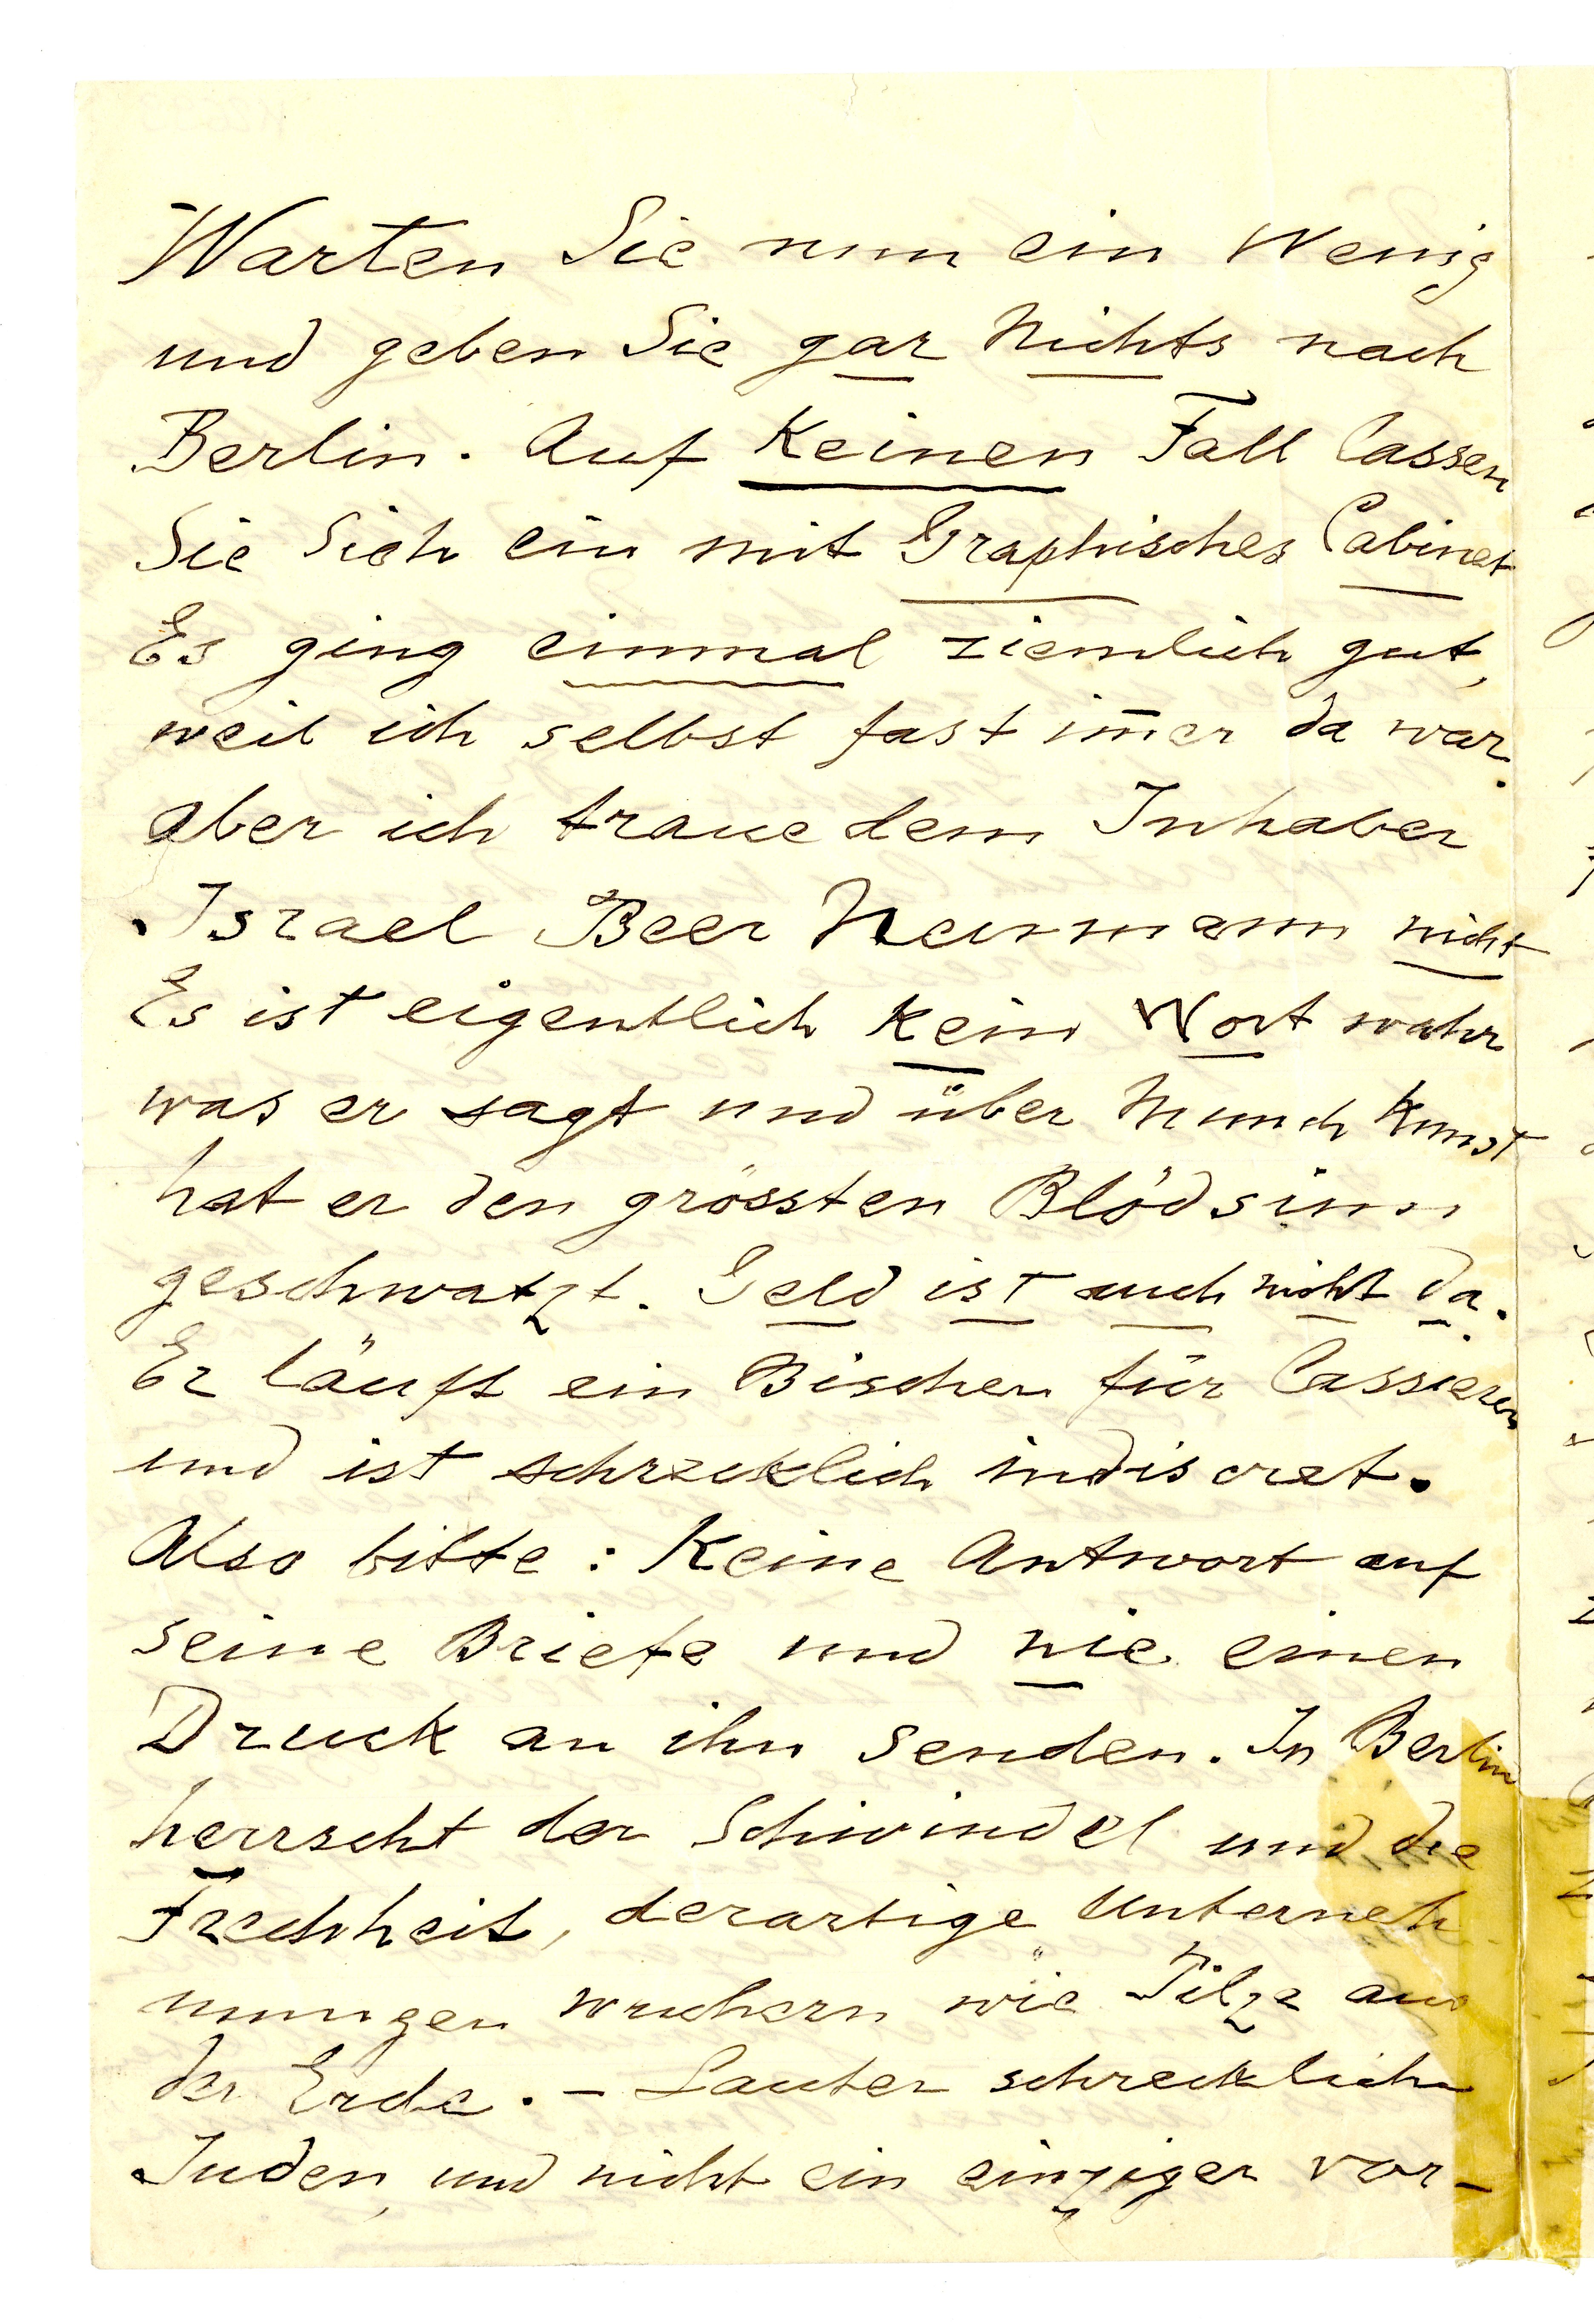 Warten Sie nun ein Wenig
und geben Sie gar Nichts nach
Berlin. Auf Keinen Fall lassen
Sie Sich ein mit Graphisches Cabinet
Es ging einmal ziemlich gut,
weil ich selbst fast im̅er da war.
aber ich traue dem Inhaber
Israel Beer Neumann nicht
Es ist eigentlich kein Wort wahr
was er sagt und über Munch Kunst
hat er den grössten Blödsinn
geschwatzt. Geld ist auch nicht da.
Er läuft ein Bischen für Cassierer
und ist schrecklich indiscret.
Also bitte: Keine Antwort auf
seine Briefe und nie einen
Druck an ihn senden. In Berlin
herrscht der Schwindel und die
Frechheit, derartige Unterneh
mungen wuchern wie Pilze aus
der Erde. – Lauter schreckliche
Juden, und nicht ein einziger vor-